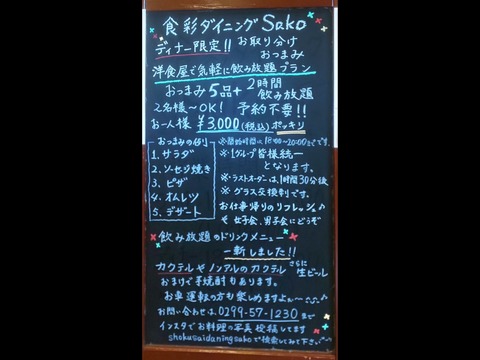 食彩ダイニング Sako
ディナー限定!! お取り分け
おつまみ
洋食屋で気軽に飲み放題プラン
おつまみ5品+2時間
飲み放題
2名様~OK! 予約不要!!
お一人様 ¥3,000(税込)ポッキリ
おつまみの例
1. サラダ
2. ソーセージ焼き
3. ピザ
4. オムレツ
5. デザート
※開始時間は18:00~20:00までです。
※1グループ皆様統一
となります。
※ラストオーダーは、1時間30分後
※グラス交換制です。
お仕事帰りのリフレッシュ♪
女子会、男子会にどうぞ
飲み放題のドリンクメニュー
一新しました!!
カクテルやノンアルのカクテル さらに
生ビール
おまけで芋焼酎もあります。
お車運転の方も楽しめますよぉ~
お問い合わせは、0299-57-1230まで
インスタでお料理の写真投稿してます
shokusaidaningsakoで検索してみて下さい